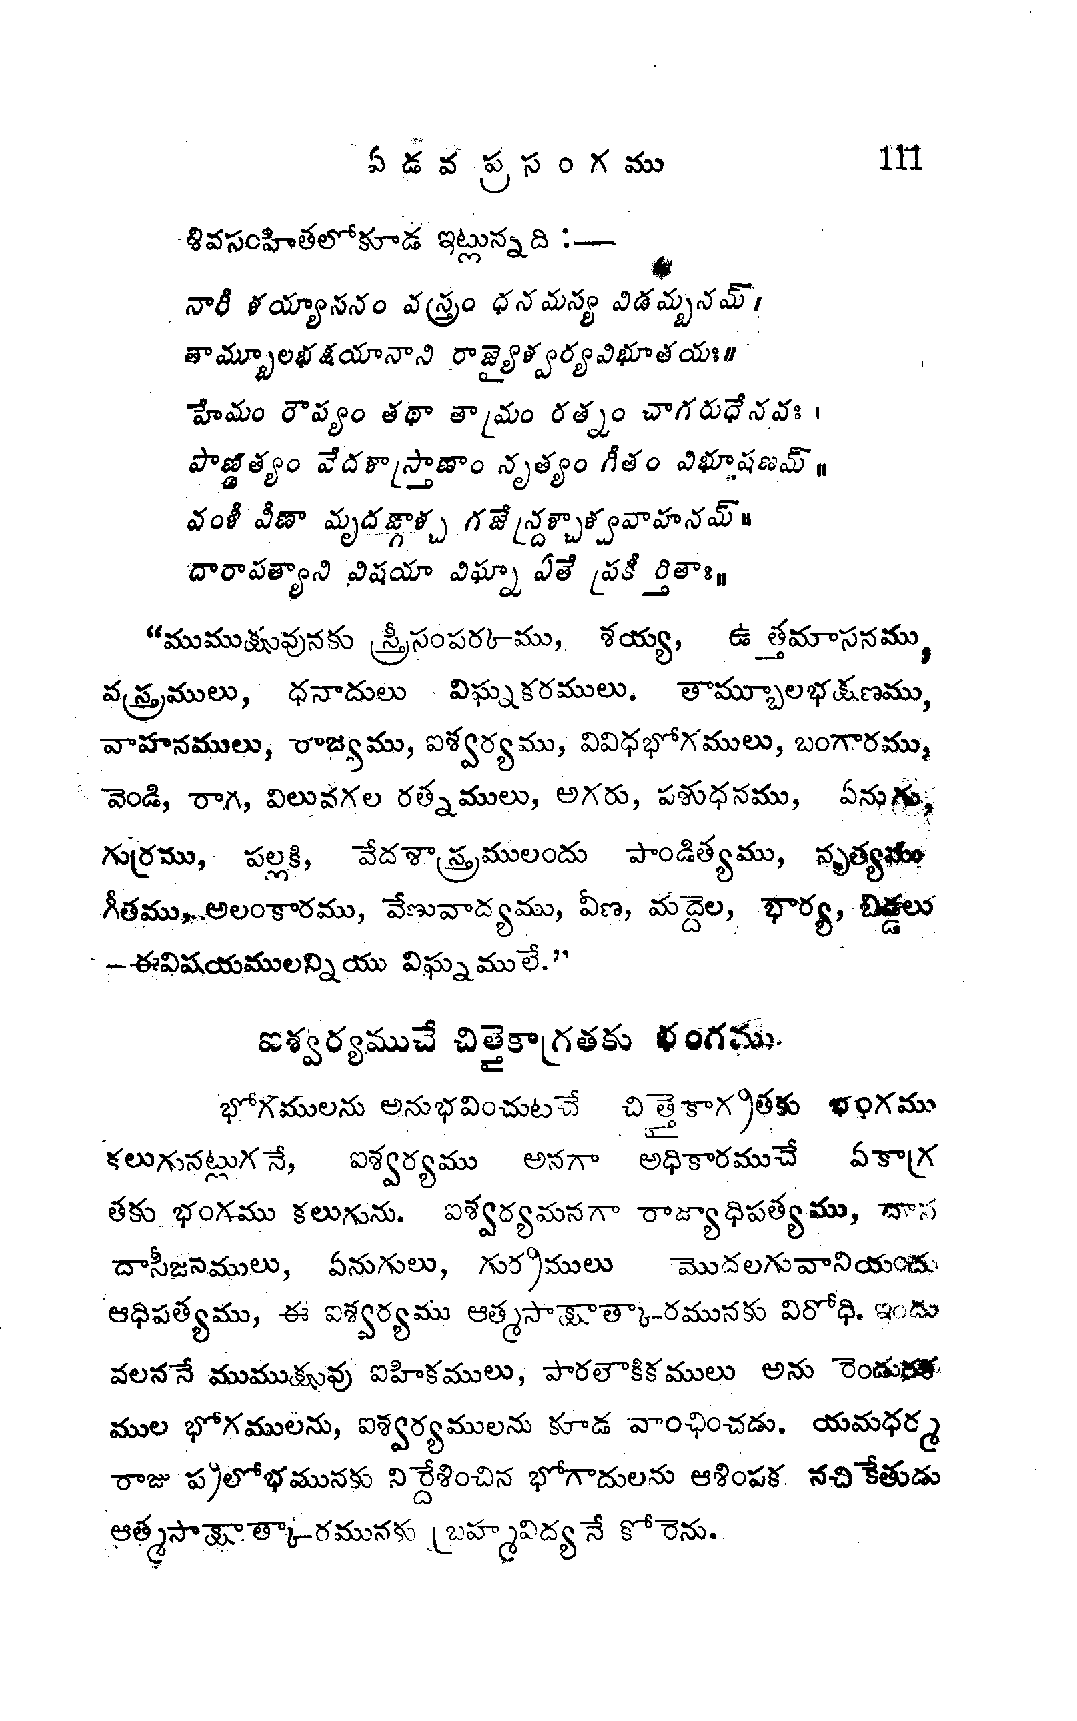 ఏడవ ప్రసంగము 111
శివసంహితలోకూడ ఇట్లున్నది :—
నారీ శయ్యాసనం వస్త్రం ధనమస్య విడమ్బనమ్।
తామ్బూలభక్షయానాని రాజ్యైశ్వర్యవిభూతయః॥
హేమం రౌప్యం తథా తామ్రం రత్నం చాగరుధేనవః ।
పాణ్డిత్యం వేదశాస్త్రాణాం నృత్యం గీతం విభూషణమ్॥
వంశీ వీణా మృదఙ్గాశ్చ గజేన్ద్రశ్చాశ్వవాహనమ్॥
దారాపత్యాని విషయా విఘ్నా ఏతే ప్రకీర్తితాః॥
“ముముక్షువునకు స్త్రీసంపర్కము, శయ్య, ఉత్తమాసనము,
వస్త్రములు, ధనాదులు విఘ్నకరములు. తామ్బూలభక్షణము,
వాహనములు, రాజ్యము, ఐశ్వర్యము, వివిధభోగములు, బంగారము,
వెండి, రాగి, విలువగల రత్నములు, అగరు, పశుధనము, ఏనుగు,
గుర్రము, పల్లకి, వేదశాస్త్రములందు పాండిత్యము, నృత్యము
గీతము, అలంకారము, వేణువాద్యము, వీణ, మద్దెల, భార్య, బిడ్డలు
—ఈవిషయములన్నియు విఘ్నములే.”
ఐశ్వర్యముచే చిత్తైకాగ్రతకు భంగము.
భోగములను అనుభవించుటచే చిత్తైకాగ్రతకు భంగము
కలుగునట్లుగనే, ఐశ్వర్యము అనగా అధికారముచే ఏకాగ్ర
తకు భంగము కలుగును. ఐశ్వర్యమనగా రాజ్యాధిపత్యము, దాస
దాసీజనములు, ఏనుగులు, గుర్రములు మొదలగువానియందు
ఆధిపత్యము, ఈ ఐశ్వర్యము ఆత్మసాక్షాత్కారమునకు విరోధి. ఇందు
వలననే ముముక్షువు ఐహికములు, పారలౌకికములు అను రెండురక
ముల భోగములను, ఐశ్వర్యములను కూడ వాంఛించడు. యమధర్మ
రాజు ప్రలోభమునకు నిర్దేశించిన భోగాదులను ఆశింపక నచికేతుడు
ఆత్మసాక్షాత్కారమునకు బ్రహ్మవిద్యనే కోరెను.